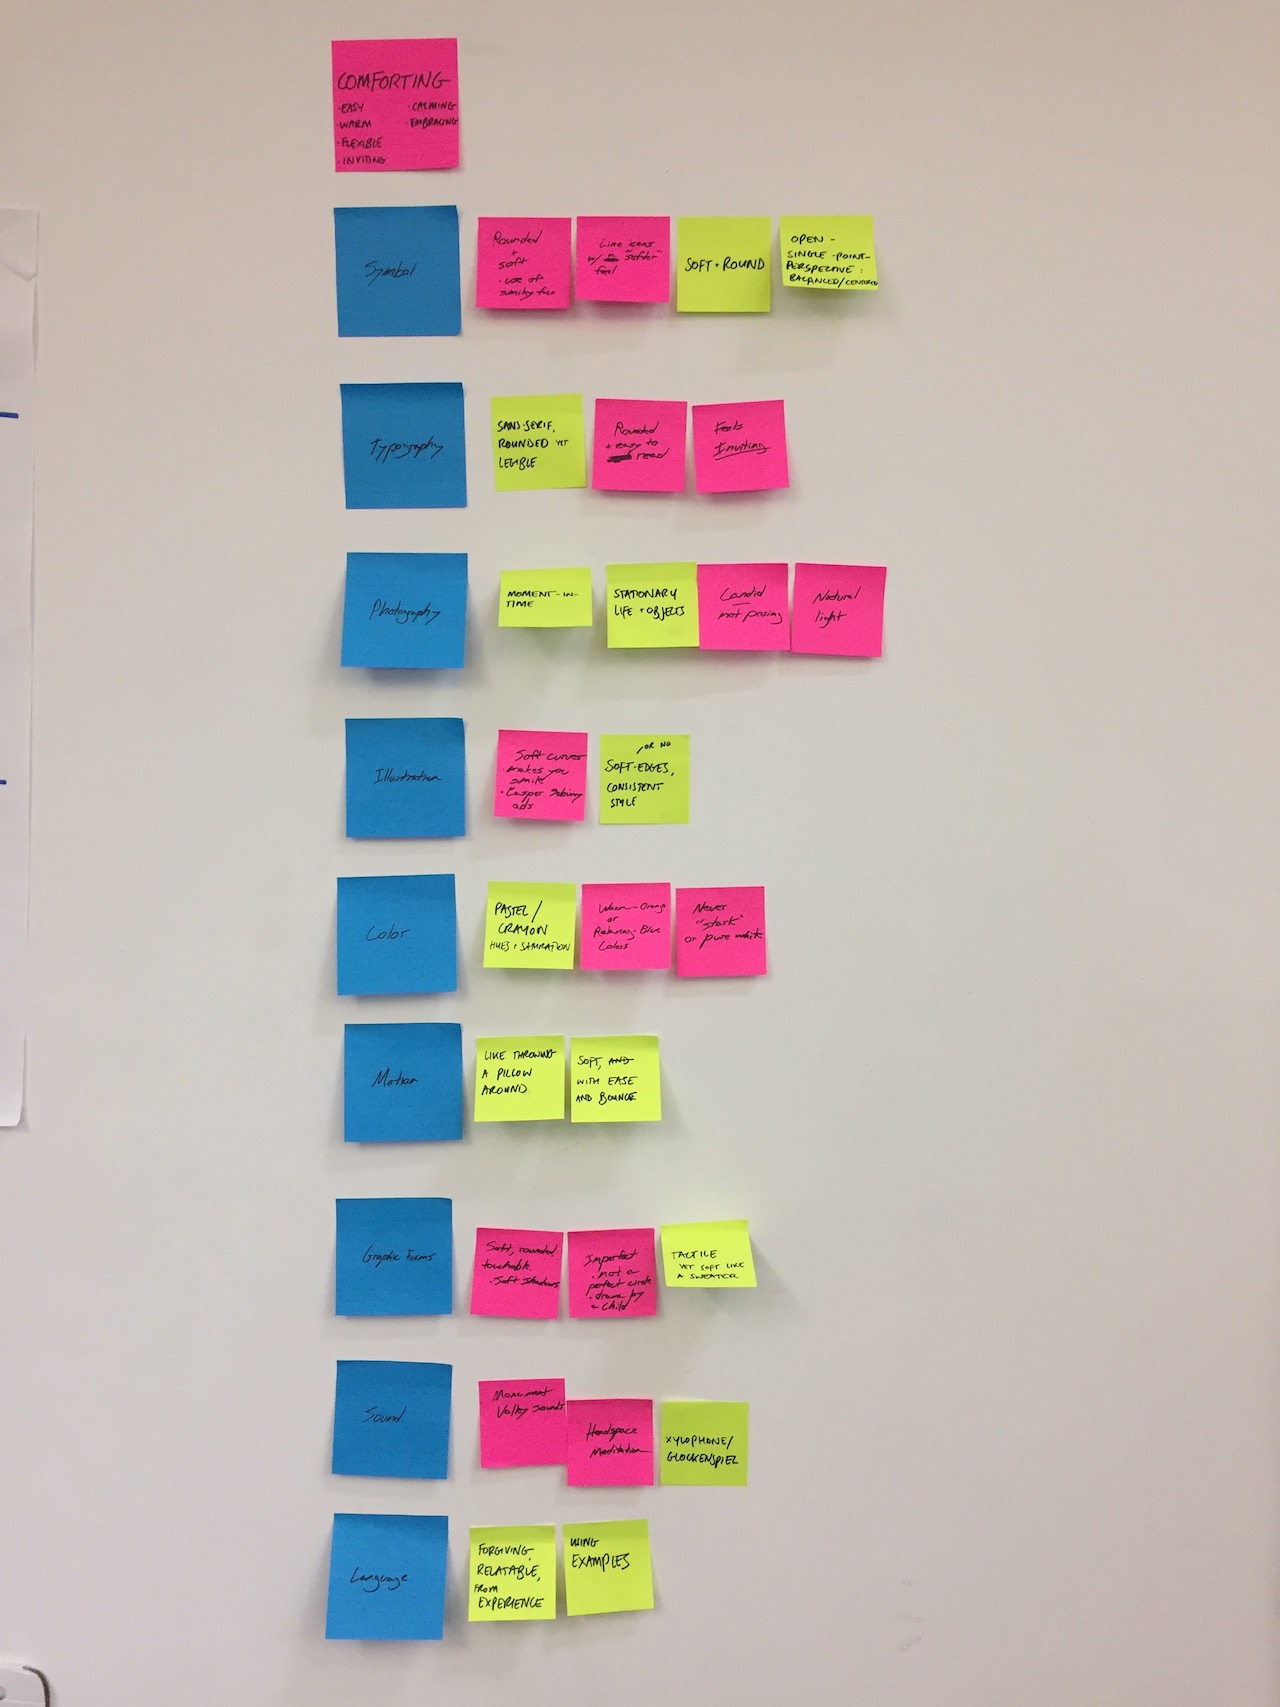 COMFORTING
· EASY
· WARM
· FLEXIBLE
· INVITING
· CALMING
· EMBRACING
Symbol
Rounded
+
soft
· use of
smiley face
Line icons
w/ "softer"
feel
SOFT + ROUND
OPEN -
SINGLE-POINT-
PERSPECTIVE:
BALANCED/CENTERED
Typography
SANS-SERIF,
ROUNDED YET
LEGIBLE
Rounded
+ easy to
read
Feels
Inviting
Photography
MOMENT-IN-
TIME
STATIONARY
LIFE + OBJECTS
Candid
not posing
Natural
light
Illustration
Soft curves
· makes you
smile
· Casper Subway
ads
, OR NO
SOFT-EDGES,
CONSISTENT
STYLE
Color
PASTEL/
CRAYON
HUES + SATURATION
Warm-Orange
or
Relaxing-Blue
Colors
Never
"stark"
or pure white
Motion
LIKE THROWING
A PILLOW
AROUND
SOFT, AND
WITH EASE
AND BOUNCE
Graphic Forms
Soft, rounded,
touchable
· Soft shadows
Imperfect
· not a
perfect circle
· drawn by
a child
TACTILE
YET SOFT LIKE
A SWEATER
Sound
Monument
Valley sounds
Headspace
Meditation
XYLOPHONE/
GLOCKENSPIEL
Language
FORGIVING,
RELATABLE,
FROM
EXPERIENCE
USING
EXAMPLES